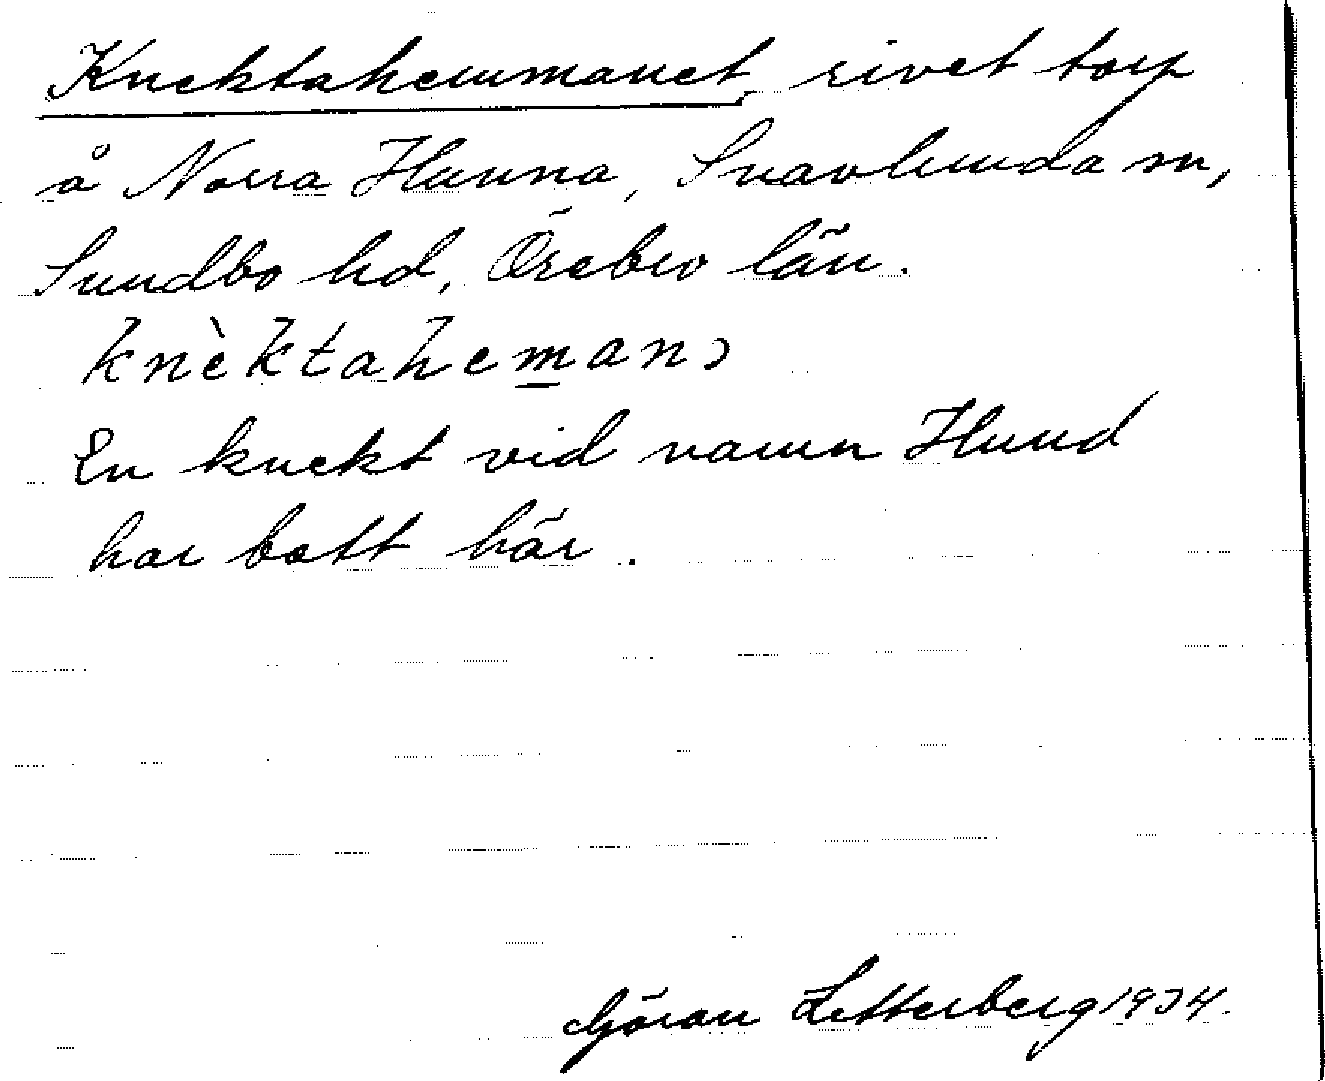 Knektahemmanet, rivet torp
å Norra Hunna, Snavlunda sn,
Sundbo hd, Örebro län.
knèktahemanɔ
En knekt vid namn Hund
har bott här.
Göran Zetterberg 1934.